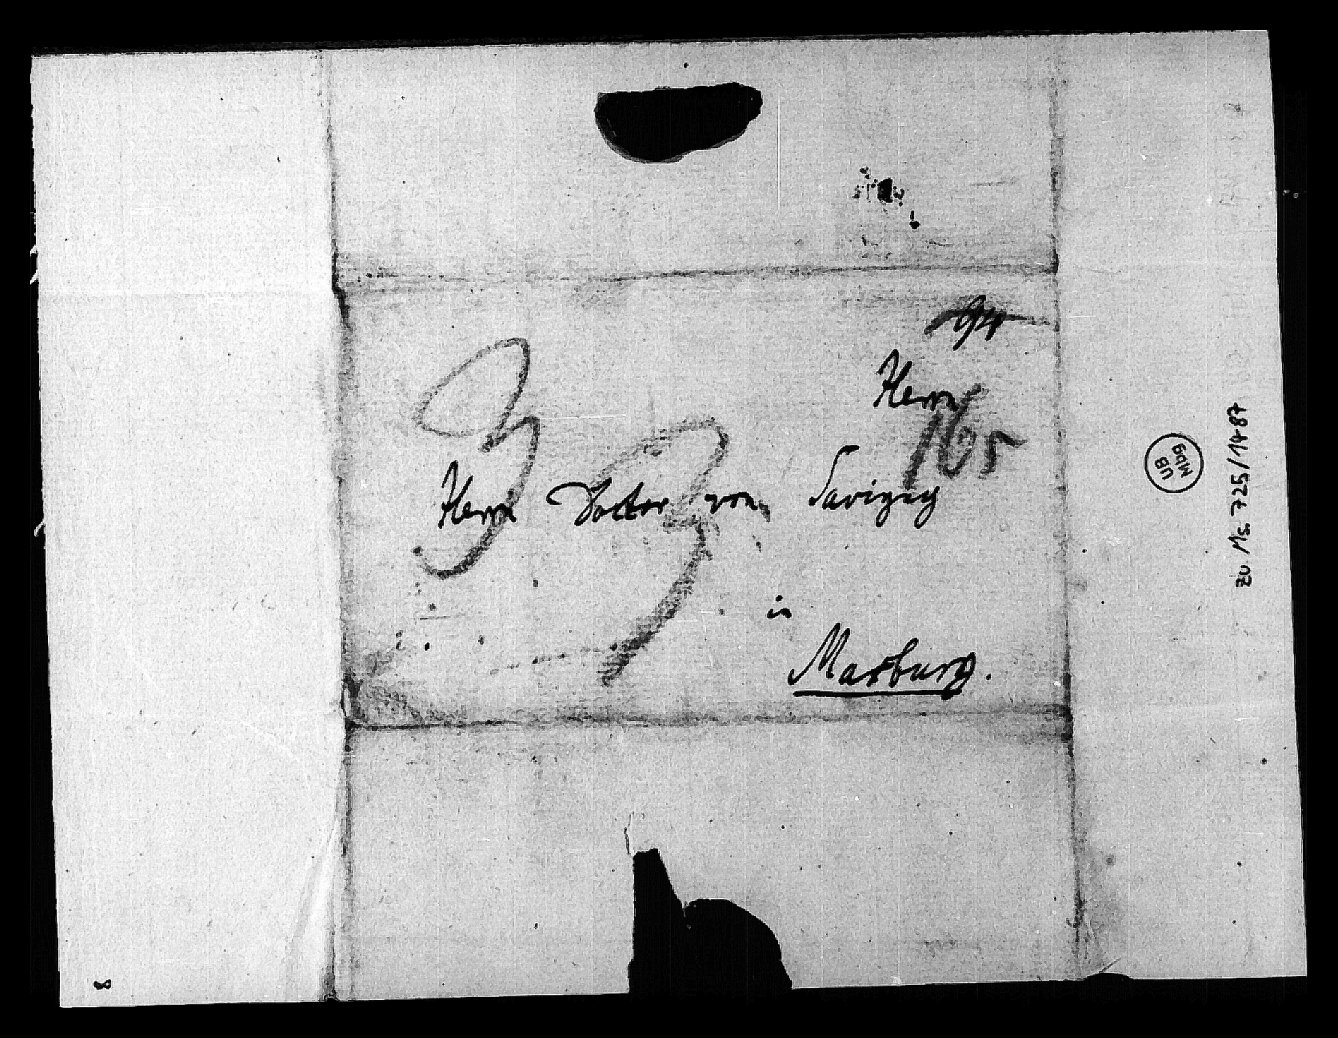 Herrn
165
Herrn Doktor von Savigny
in
Marburg.
33
UB
Mbg
zu Ms. 725/1487
8